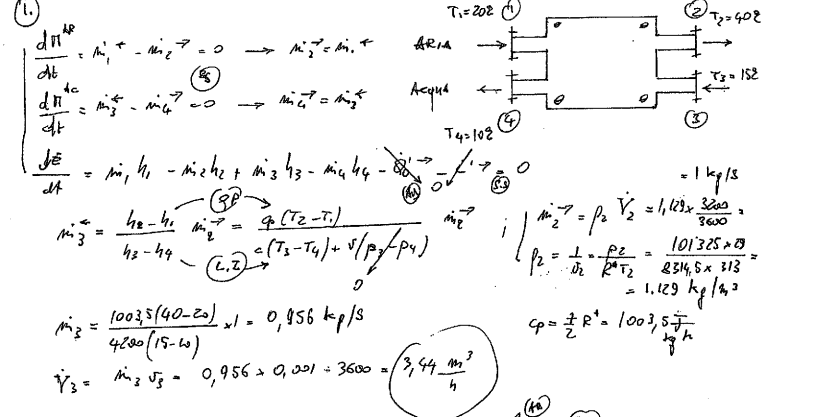 1.
T₁=20°C ① ② T₂=40°C
dM^AR/dt = ṁ₁^← - ṁ₂^→ = 0 → ṁ₂^→ = ṁ₁^← ARIA
(RS)
T₃=15°C
dM^AC/dt = ṁ₃^← - ṁ₄^→ = 0 → ṁ₄^→ = ṁ₃^← Acqua
④ ③
T₄=10°C
dE/dt = ṁ₁h₁ - ṁ₂h₂ + ṁ₃h₃ - ṁ₄h₄ - Q̇^→ - = 0
(AD) 0 (S.S)
(GP)
ṁ₃^← = (h₂-h₁)/(h₃-h₄) ṁ₂^→ = cp(T₂-T₁)/(c(T₃-T₄)+v(p₃-p₄)) ṁ₂^→ ;
(L.I)
0
= 1 kg/s
ṁ₂^→ = ρ₂ V̇₂ = 1,129 × 3200/3600 =
ρ₂ = 1/v₂ = p₂/(R*T₂) = (101325×29)/(8314,5×313) =
= 1.129 kg/m³
ṁ₃ = 1003,5(40-20)/4200(15-10) ×1 = 0,956 kg/s
cp = 7/2 R* = 1003,5 J/kg K
V̇₃ = ṁ₃ v₃ = 0,956 × 0,001 ÷ 3600 = 3,44 m³/h
(AD)